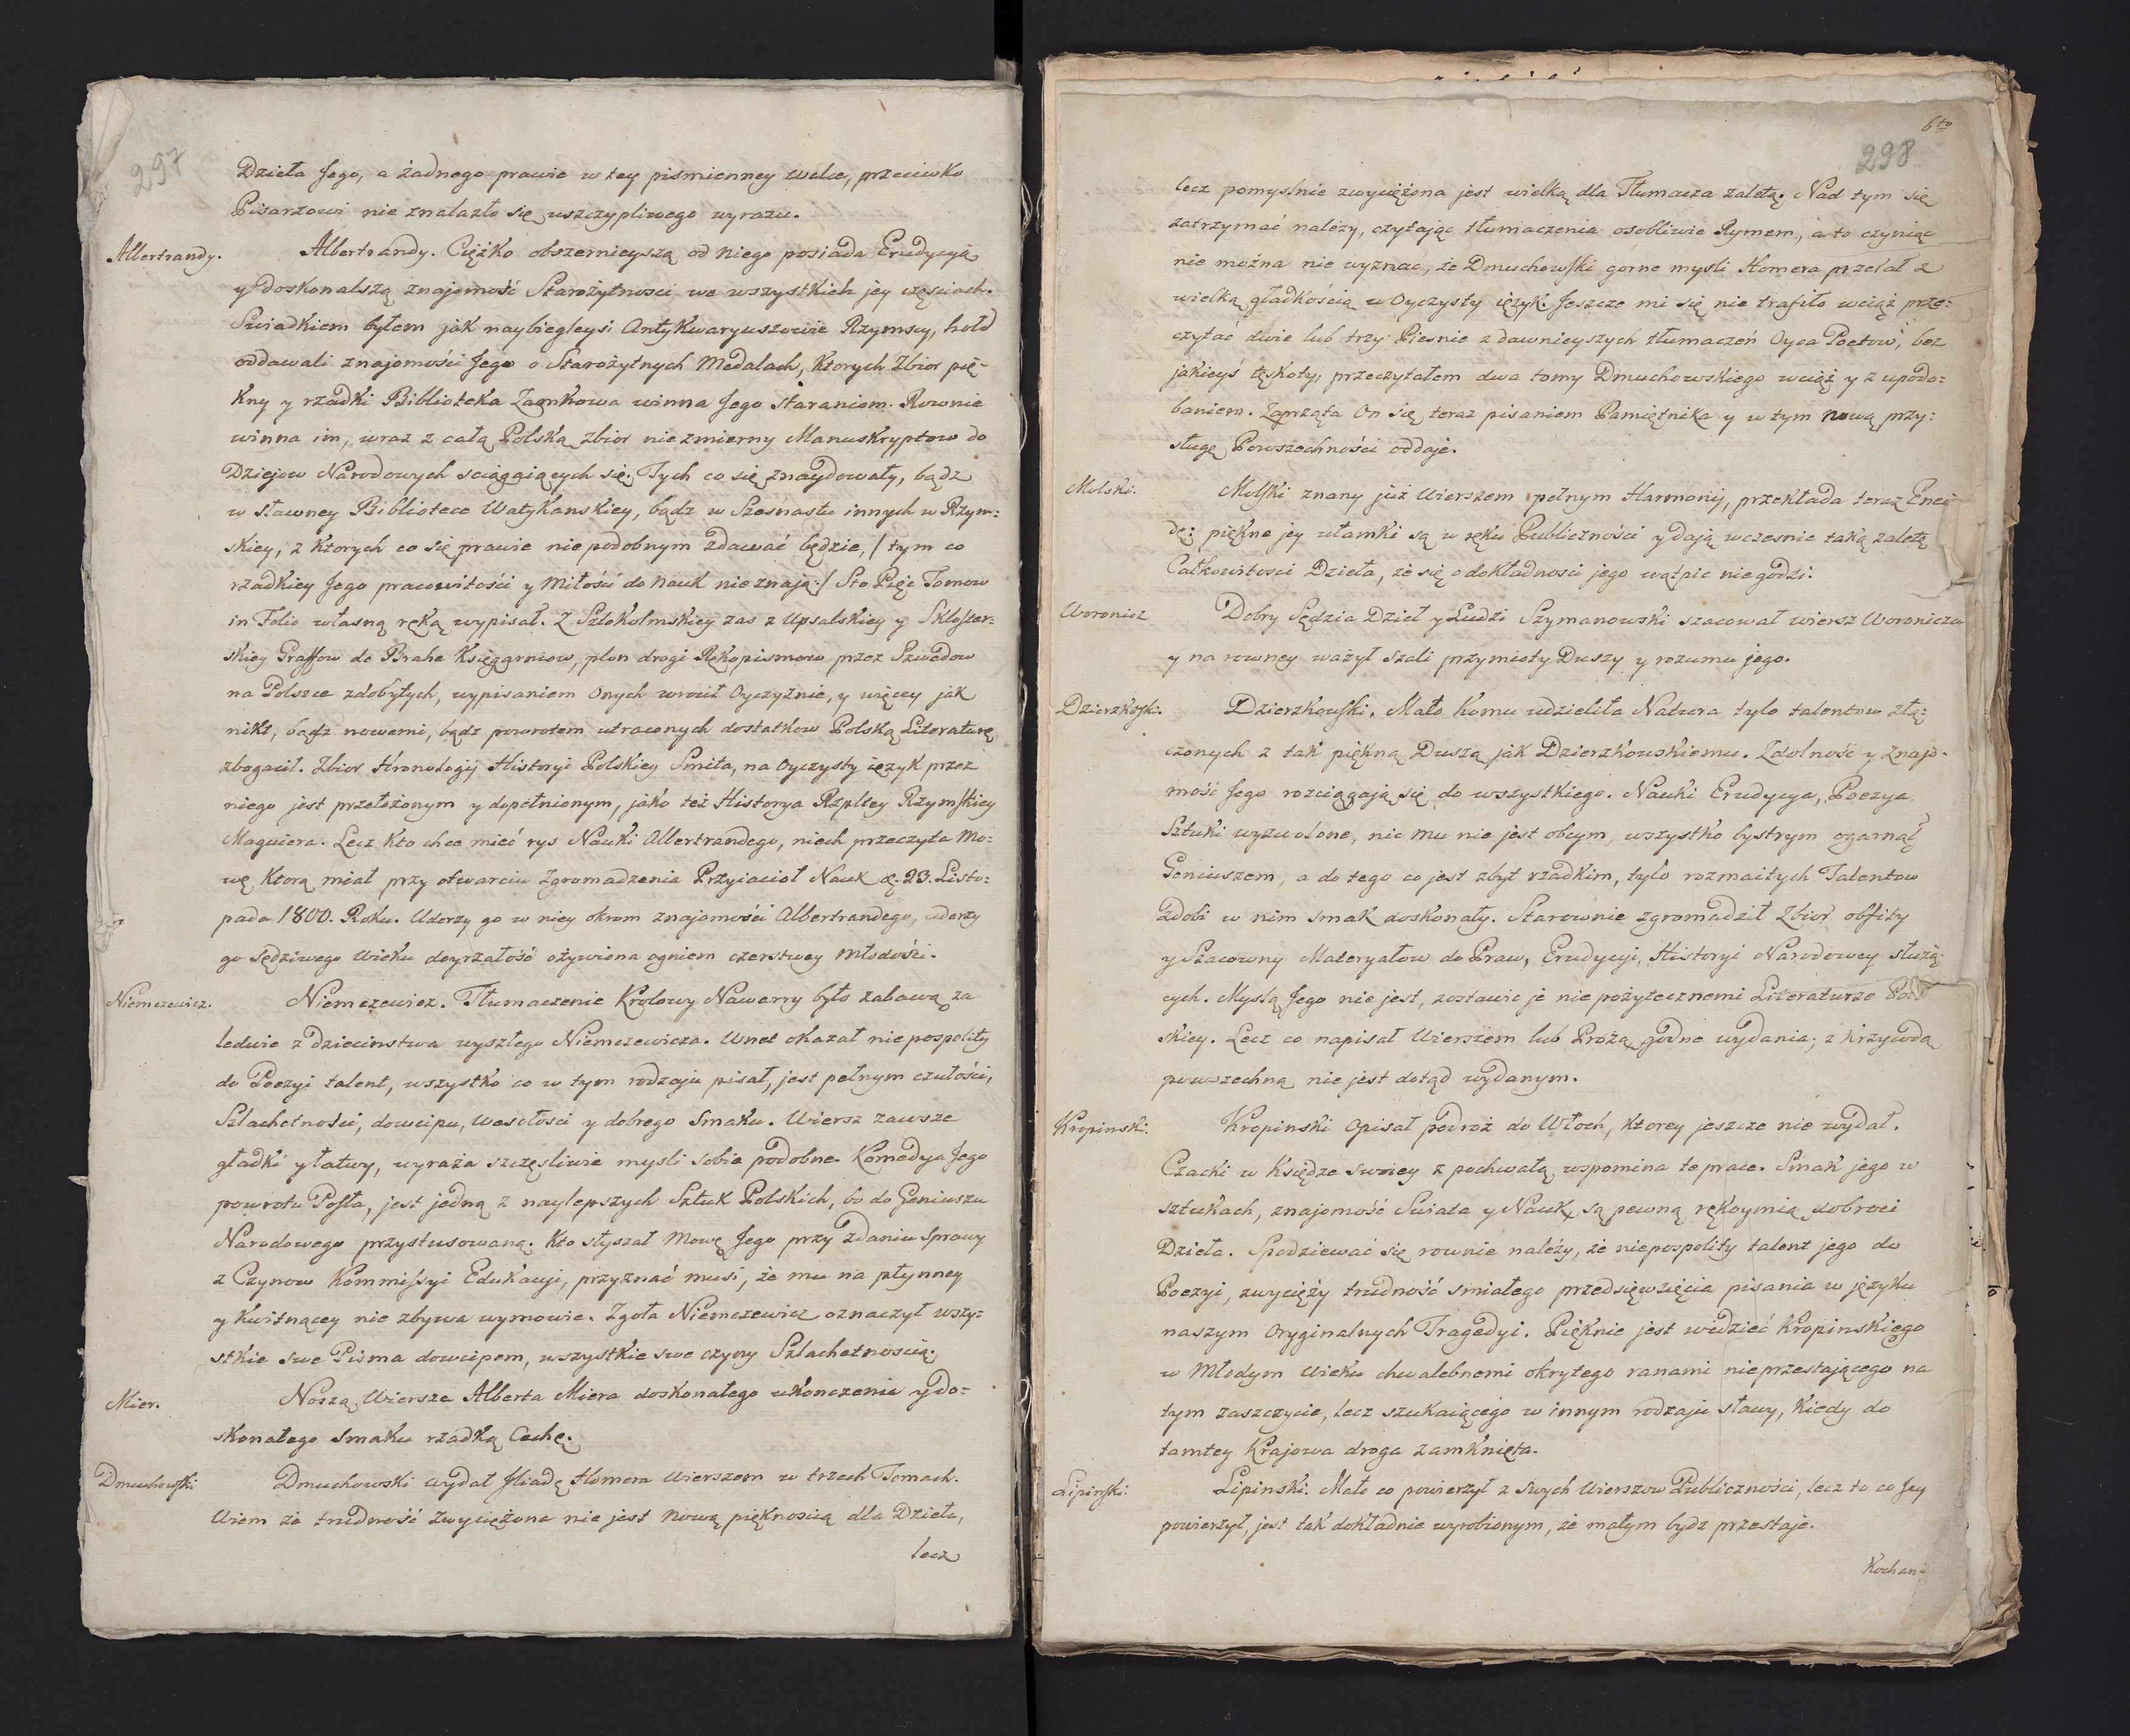 297
Dzieła Jego, a żadnego prawie w tey pismienney walce, przeciwko
Pisarzowi nie znalazło się uszczypliwego wyrazu.
Albertrandy.
Albertrandy. Ciężko obszernieyszą od niego posiada Erudycyą
y doskonalszą znajomość Starożytnosci we wszystkich jey częsciach.
Swiadkiem byłem jak naybiegleysi Antykwaryuszowie Rzymscy, hołd
oddawali znajomości Jego o Starożytnych Medalach, Ktorych Zbior pię-
kny y rzadki Biblioteka Zamkowa winna Jego staraniom. Rownie
winna im, wraz z całą Polską zbior niezmierny Manuskryptow do
Dziejow Narodowych sciągaiących się. Tych co się znaydowały, bądz
w sławney Bibliotece Watykanskiey, bądz w Szesnastu innych w Rzym=
skiey, z Ktorych co się prawie niepodobnym zdawać będzie, / tym co
rzadkiey Jego pracowitości y Miłości do Nauk nie znają / Sto Pięc Tomow
in Folio własną ręką wypisał. Z Sztokolmskiey zas z Upsalskiey y Skloster=
skiey Graffow de Brahe Księgarniow, plon drogi Rękopismow przez Szwedow
na Polszce zdobytych, wypisaniem Onych wrocił Oyczyznie, y więcey jak
nikt, bądz nowemi, bądz powrotem utraconych dostatkow Polską Literaturę
zbogacił. Zbior Hronologij Historyi Polskiey Smita, na Oyczysty ięzyk przez
niego jest przełożonym y dopełnionym, jako też Historya Rzpltey Rzymskiey
Maquiera. Lecz kto chce mieć rys Nauki Albertrandego, niech przeczyta Mo=
wę Ktorą miał przy otwarciu Zgromadzenia Przyiacioł Nauk d. 23. Listo=
pada 1800. Roku. Uderzy go w niey okrom znajomości Albertrandego, uderzy
go Sędziwego Wieku doyrzałość ożywiona ogniem czerstwey Młodości.
Niemcewicz.
Niemcewicz. Tłumaczenie Krolowy Nawarry było zabawą za
ledwie z dziecinstwa wyszłego Niemcewicza. Wnet okazał niepospolity
do Poezyi talent, wszystko co w tym rodzaju pisał, jest pełnym czułości,
Szlachetności, dowcipu, Wesołosci y dobrego Smaku. Wiersz zawsze
gładki y łatwy, wyraża szczęsliwie mysli sobie podobne. Komedya Jego
powrotu Posła, jest jedną z naylepszych Sztuk Polskich, bo do Geniuszu
Narodowego przystusowaną. Kto słyszał Mowę Jego przy zdaniu Sprawy
z Czynow Kommissyi Edukacyi, przyznać musi, że mu na płynney
y kwitnącey nie zbywa wymowie. Zgoła Niemcewicz oznaczył wszy=
stkie swe Pisma dowcipem, wszystkie swe czyny Szlachetnoscią.
Mier.
Noszą Wiersze Alberta Miera doskonałego ukonczenia y do=
skonałego Smaku rzadką Cechę.
Dmuchowski
Dmuchowski wydał Iliadę Homera Wierszem w trzech Tomach.
Wiem że trudność Zwyciężona nie jest Nową pięknoscią dla Dzieła,
lecz
6to
298
lecz pomyslnie zwyciężona jest wielką dla Tłumacza zaletą. Nad tym się
zatrzymać należy, czytając tłumaczenia osobliwie Rymem, a to czyniąc
nie można nie wyznać, że Dmuchowski gorne mysli Homera przelał z
wielką gładkością w Oyczysty ięzyk. Jeszcze mi się nie trafiło wciąż prze=
czytać dwie lub trzy Piesnie z dawnieyszych tłumaczeń Oyca Poetow, bez
jakieyś tęskoty, przeczytałem dwa tomy Dmuchowskiego wciąż y z upodo=
baniem. Zaprząta On się teraz pisaniem Pamiętnika y w tym nową przy=
sługę Powszechności oddaje.
Molski.
Molski znany już Wierszem pełnym Harmonij, przekłada teraz Enei
dę; piękne jey ułamki są w ręku Publiczności y dają wczesnie taką zaletę
Całkowitosci Dzieła, że się o dokładnosci jego wątpic niegodzi.
Woronicz
Dobry Sędzia Dzieł y Ludzi Szymanowski szacował wiersz Woronicza
y na rowney ważył szali przymioty Duszy y rozumu jego.
Dzierzkoski.
Dzierzkowski. Mało komu udzieliła Natura tylo talentow złą=
czonych z tak piękną Duszą jak Dzierzkowskiemu. Zdolność y znajo-
mość Jego rozciągają się do wszystkiego. Nauki Erudycya, Poezya
Sztuki wyzwolone, nic mu nie jest obcym, wszystko bystrym ogarnął
Geniuszem, a do tego co jest zbyt rzadkim, tylo rozmaitych Talentow
zdobi w nim smak doskonały. Starownie zgromadził Zbior obfity
y Szacowny Materyałow do Praw, Erudycyi, Historyi Narodowey służą=
cych. Myslą Jego nie jest, zostawic je nie pożytecznemi Literaturze Pol
skiey. Lecz co napisał Wierszem lub Prozą, godne wydania, z Krzywdą
powszechną nie jest dotąd wydanym.
Kropinski.
Kropinski Opisał podroż do Włoch, ktorey jeszcze nie wydał.
Czacki w Księdze swoiey z pochwałą wspomina te prace. Smak jego w
sztukach, znajomość Swiata y Nauk, są pewną rękoymią dobroci
Dzieła. Spodziewać się rownie należy, że niepospolity talent jego do
Poezyi, zwycięży trudność smiałego przedsięwzięcia pisania w języku
naszym Oryginalnych Tragedyi. Pięknie jest widzieć Kropinskiego
w Młodym Wieku chwalebnemi okrytego ranami nieprzestającego na
tym zaszczycie, lecz szukaiącego w innym rodzaju sławy, kiedy do
tamtey Krajowa droga zamknięta.
Lipinski.
Lipinski. Mało co powierzył z Swych Wierszow Publiczności, lecz to co Jey
powierzył, jest tak dokładnie wyrobionym, że małym bydz przestaje.
Kochan=